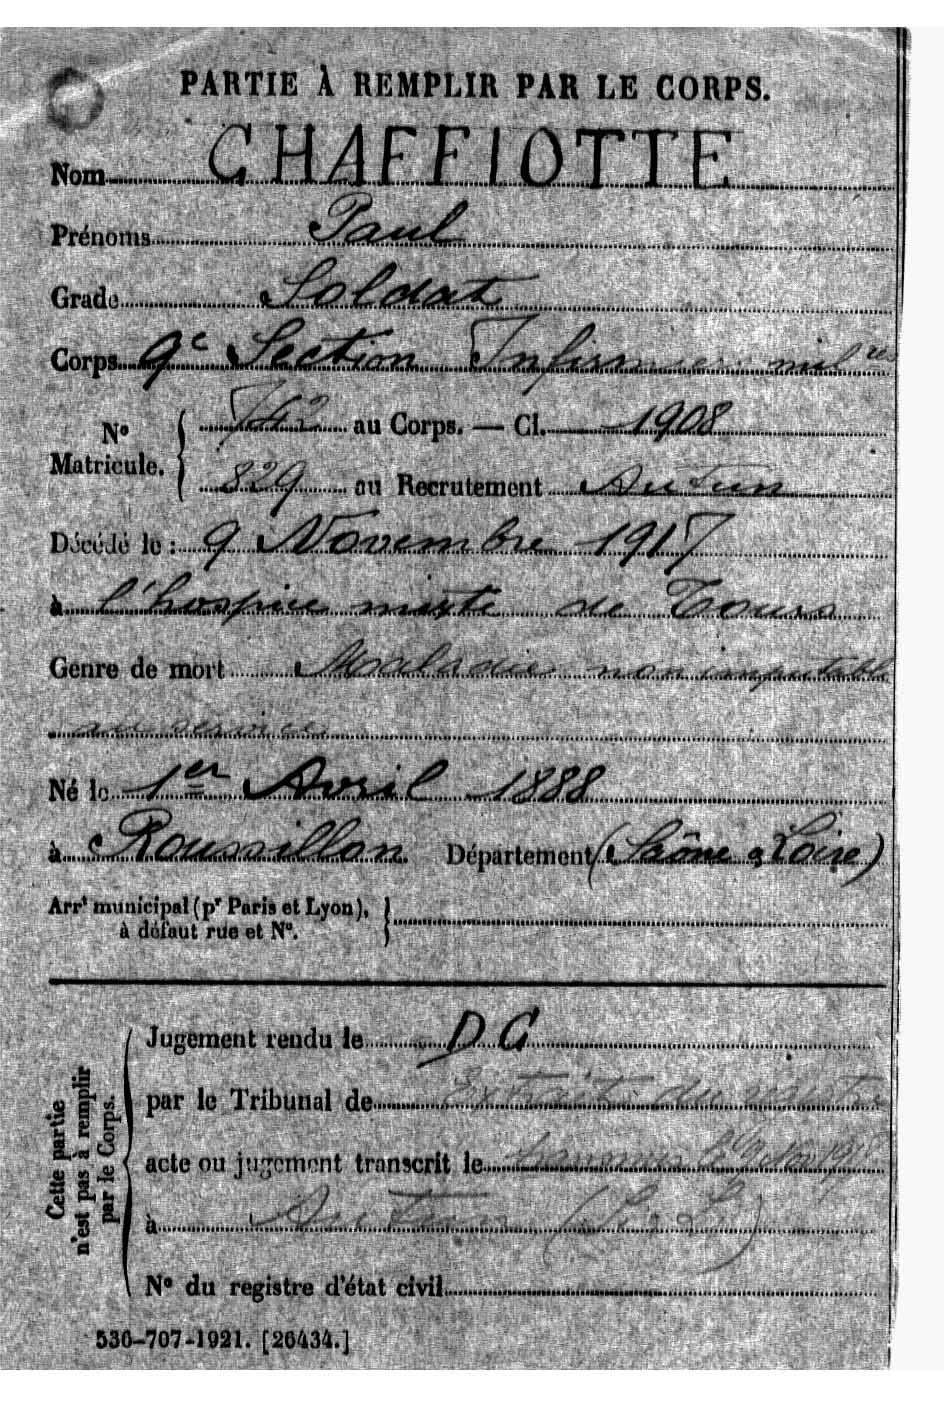 PARTIE À REMPLIR PAR LE CORPS.
Nom CHAFFIOTTE
Prénoms Paul
Grade Soldat
Corps 9e Section Infirmiers milres
No Matricule. { 742 au Corps. — Cl. 1908
829 au Recrutement Autun
Décédé le : 9 Novembre 1917
à l'hospice mixte de Tours
Genre de mort Maladie non imputable
au service
Né le 1er Avril 1888
à Roussillon. Département (Saône & Loire)
Arrt municipal (pr Paris et Lyon),
à défaut rue et No. }
Cette partie n'est pas à remplir par le Corps.
Jugement rendu le DC
par le Tribunal de Extrait du registre
acte ou jugement transcrit le transmis le 9 1918
à Autun (S. & L.)
No du registre d'état civil
530-707-1921. [26434.]